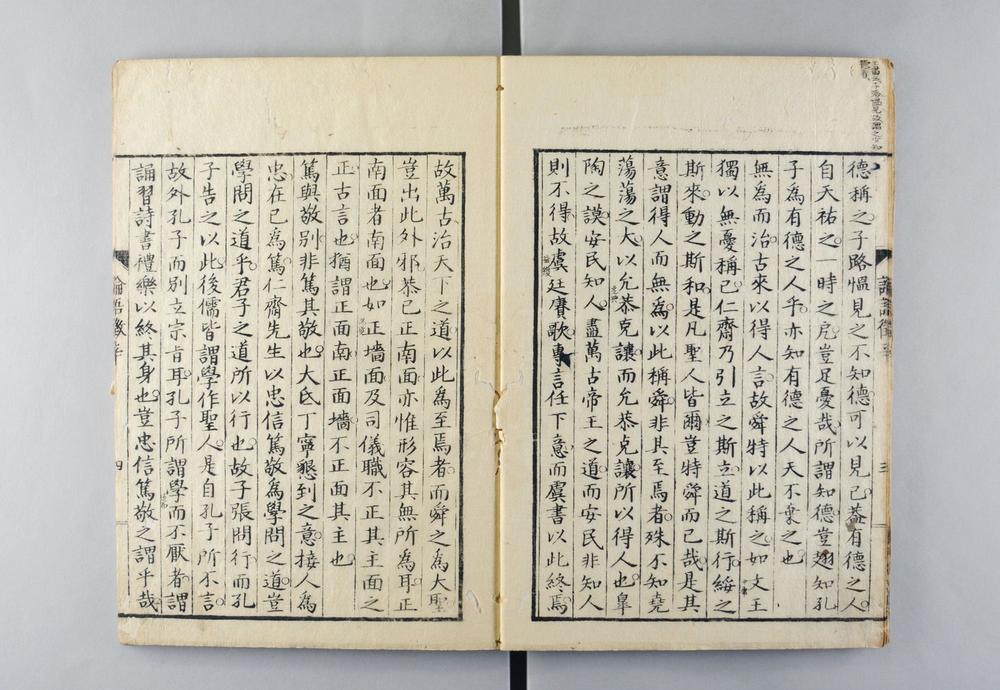 德稱之子路慍見之不知德可以見已葢有德之人
自天祐之一時之戹豈足憂哉所謂知德豈翅知孔
子為有德之人乎亦知有德之人天不棄之也
無為而治古來以得人言故舜特以此稱之如文王
獨以無憂稱已仁齋乃引立之斯立道之斯行綏之
斯來動之斯和是凡聖人皆爾豈特舜而已哉是其
意謂得人而無為以此稱舜非其至焉者殊不知堯
蕩蕩之大以允恭克讓而允恭克讓所以得人也皐
陶之謨安民知人盡萬古帝王之道而安民非知人
則不得故虞廷賡歌專言任下意而虞書以此終焉
論語徵辛
三
故萬古治天下之道以此為至焉者而舜之為大聖
豈出此外邪恭已正南面亦惟形容其無所為耳正
南面者南面也如正墻面及司儀職不正其主面之
正古言也猶謂正面南正面墻不正面其主也
篤與敬別非篤其敬也大氐丁寧懇到之意接人為
忠在已為篤仁齋先生以忠信篤敬為學問之道豈
學問之道乎君子之道所以行也故子張問行而孔
子告之以此後儒皆謂學作聖人是自孔子所不言
故外孔子而別立宗旨耳孔子所謂學而不厭者謂
誦習詩書禮樂以終其身也豈忠信篤敬之謂乎哉
論語徵辛
四